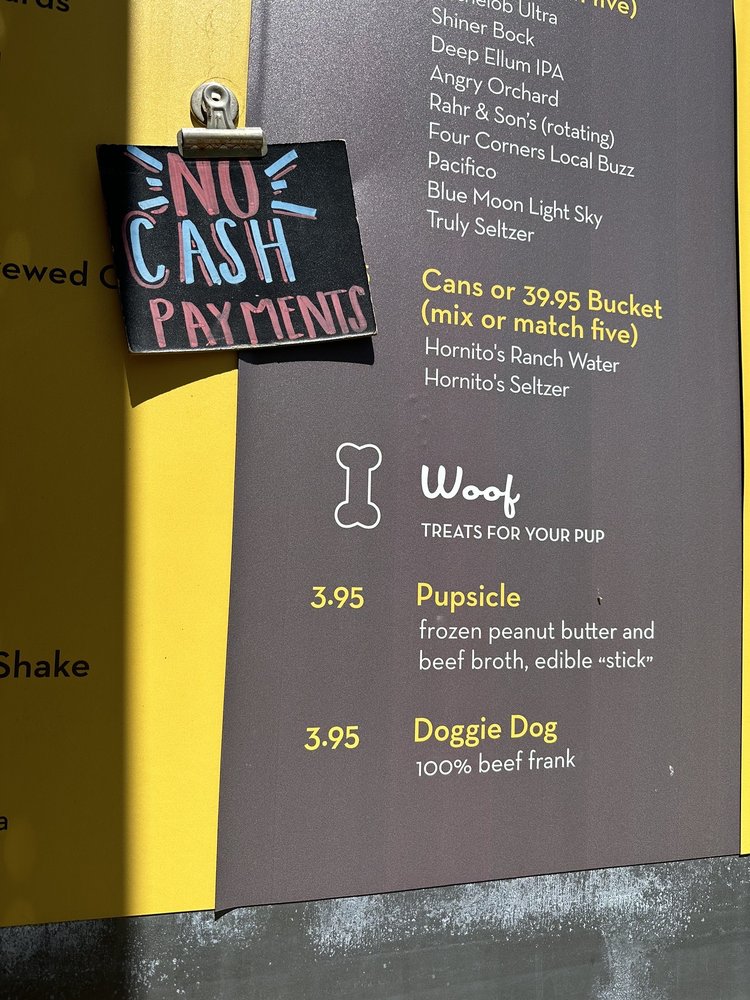 NO
CASH
PAYMENTS
Shake
five)
Ultra
Shiner Bock
Deep Ellum IPA
Angry Orchard
Rahr & Son's (rotating)
Four Corners Local Buzz
Pacifico
Blue Moon Light Sky
Truly Seltzer
Cans or 39.95 Bucket
(mix or match five)
Hornito's Ranch Water
Hornito's Seltzer
Woof
TREATS FOR YOUR PUP
3.95 Pupsicle
frozen peanut butter and
beef broth, edible “stick”
3.95 Doggie Dog
100% beef frank